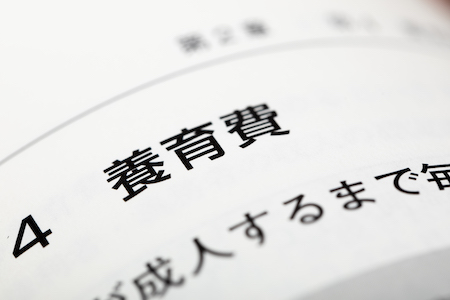 第2章
4 養育費
が成人するまで毎